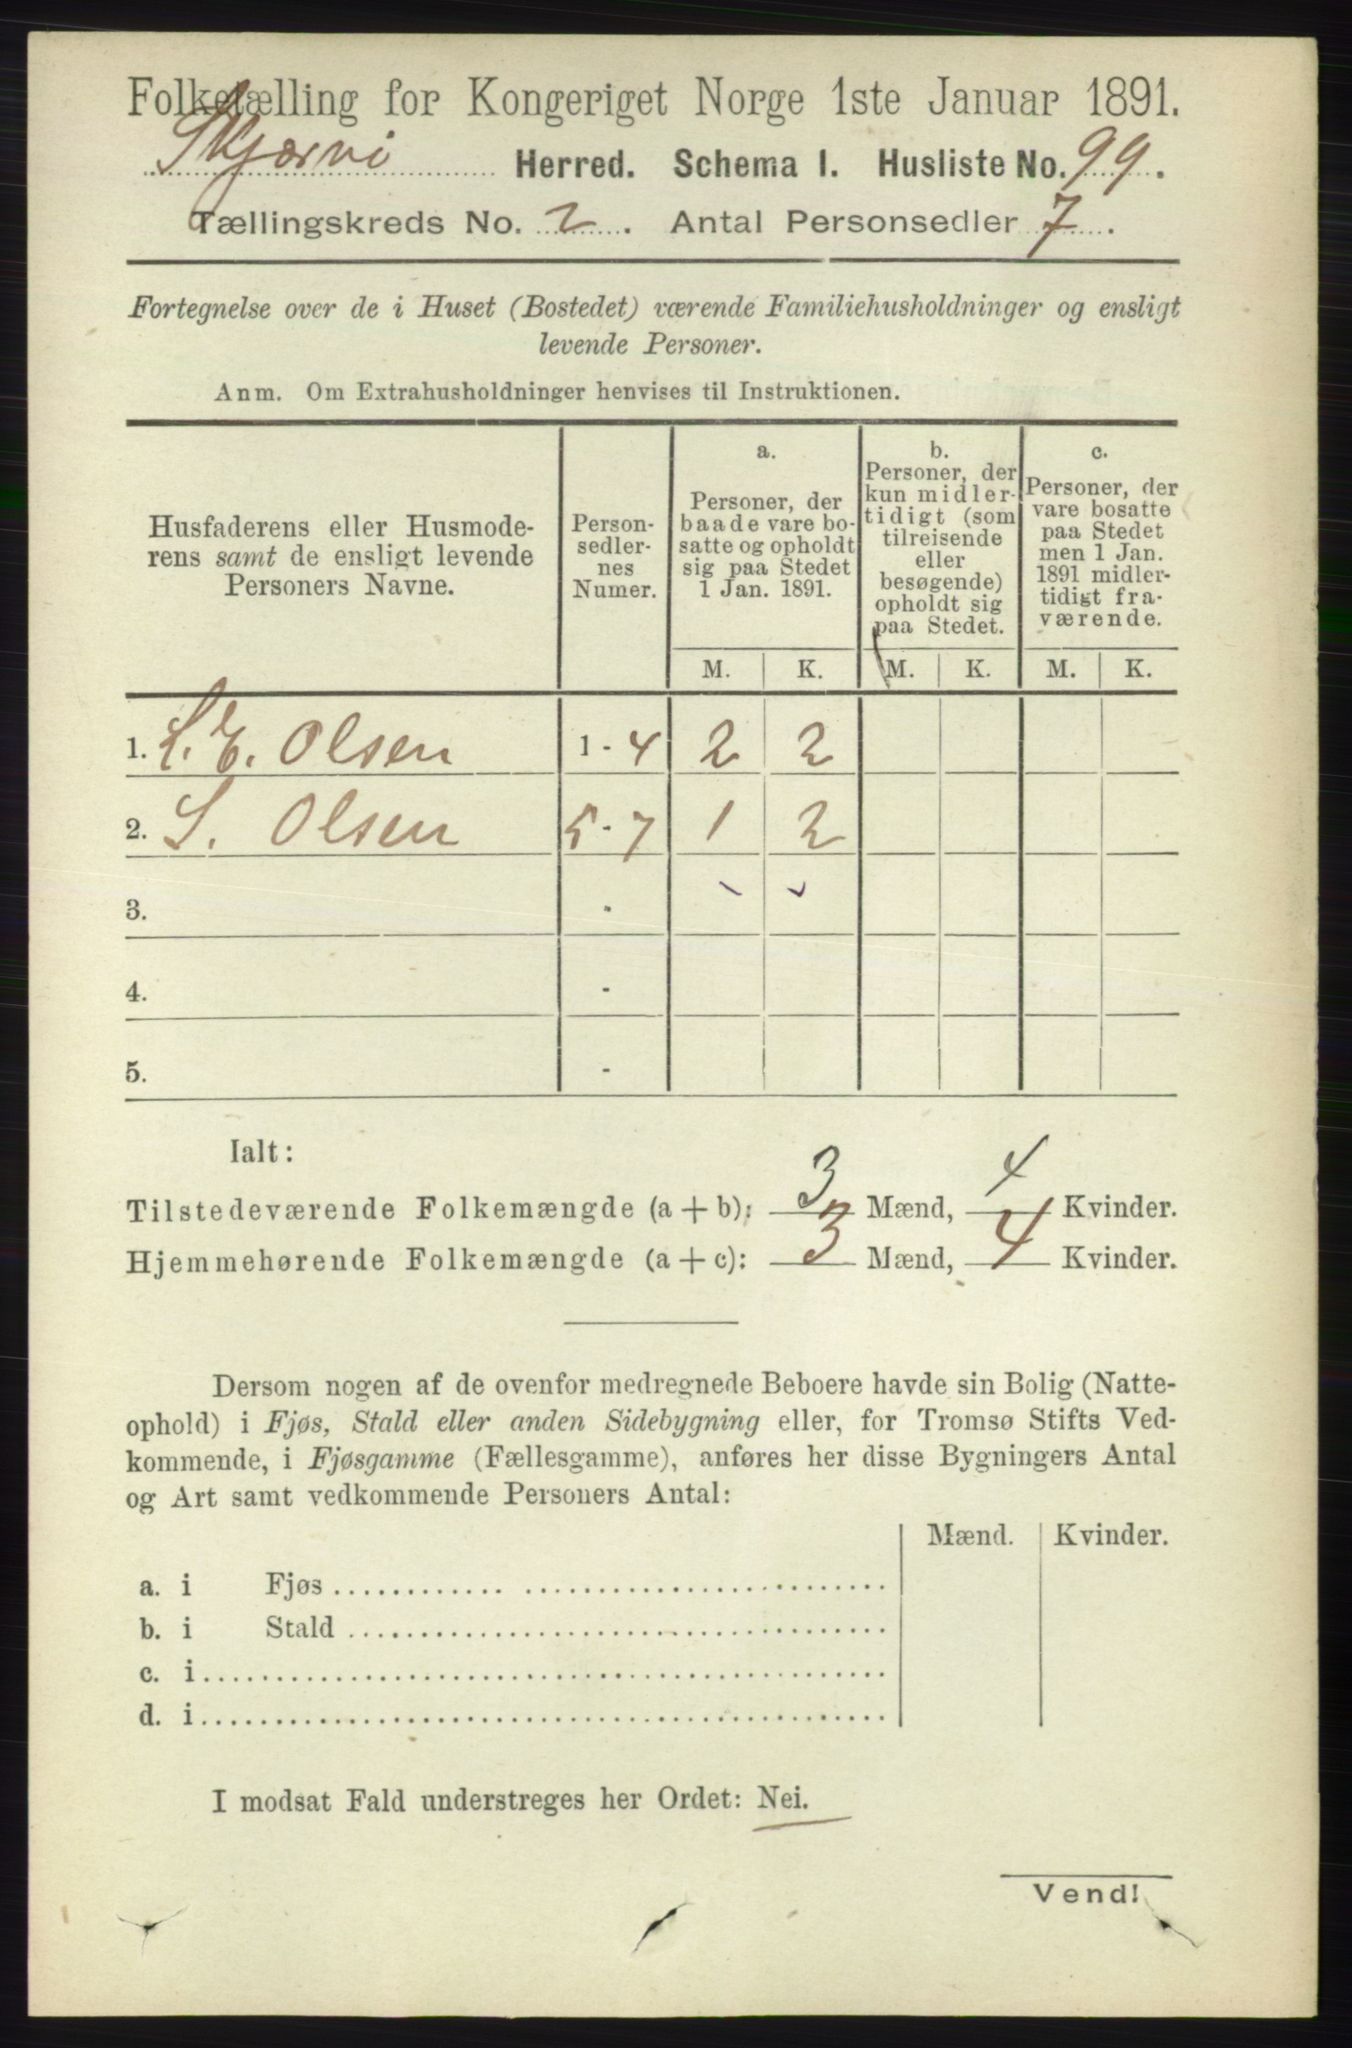 Folketælling for Kongeriget Norge 1ste Januar 1891.
Skjærvö Herred. Schema I. Husliste No. 99.
Tællingskreds No. 2. Antal Personsedler 7.
Fortegnelse over de i Huset (Bostedet) værende Familiehusholdninger og ensligt
levende Personer.
Anm. Om Extrahusholdninger henvises til Instruktionen.
Husfaderens eller Husmode-
rens samt de ensligt levende
Personers Navne.
Person-
sedler-
nes
Numer.
a.
Personer, der
baade vare bo-
satte og opholdt
sig paa Stedet
1 Jan. 1891.
b.
Personer, der
kun midler-
tidigt (som
tilreisende
eller
besøgende)
opholdt sig
paa Stedet.
c.
Personer, der
vare bosatte
paa Stedet
men 1 Jan.
1891 midler-
tidigt fra-
værende.
M. K. M. K. M. K.
1. L. E. Olsen 1 - 4 2 2
2. S. Olsen 5 - 7 1 2
3. -
4. -
5. -
Ialt:
3 4
Tilstedeværende Folkemængde (a + b): Mænd, Kvinder.
Hjemmehørende Folkemængde (a + c): 3 Mænd, 4 Kvinder.
Dersom nogen af de ovenfor medregnede Beboere havde sin Bolig (Natte-
ophold) i Fjøs, Stald eller anden Sidebygning eller, for Tromsø Stifts Ved-
kommende, i Fjøsgamme (Fællesgamme), anføres her disse Bygningers Antal
og Art samt vedkommende Personers Antal:
Mænd. Kvinder.
a. i Fjøs
b. i Stald
c. i
d. i
I modsat Fald understreges her Ordet: Nei.
Vend!